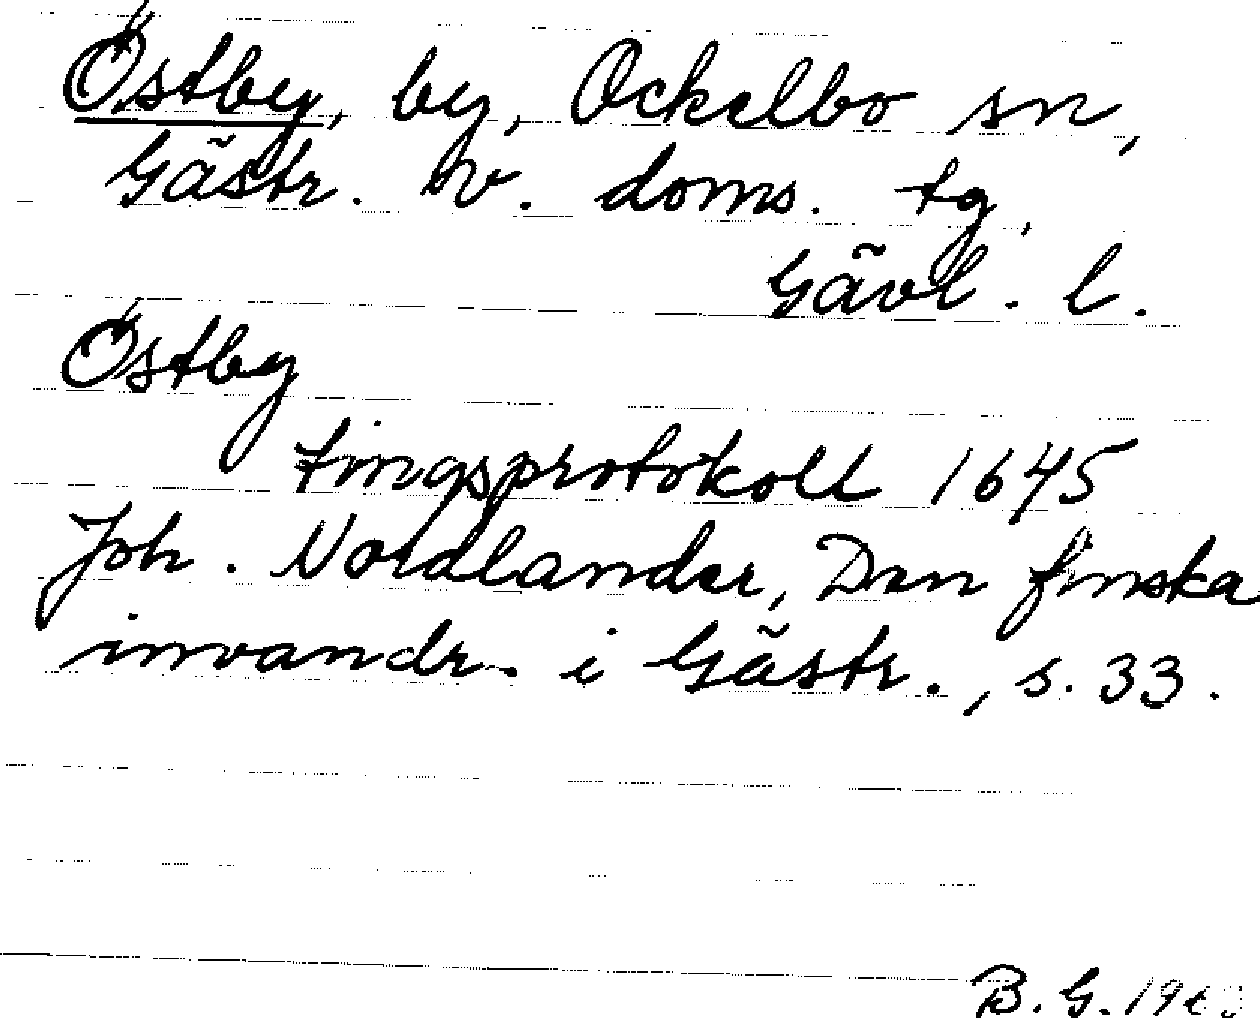 Östby, by, Ockelbo sn,
Gästr. v. doms. tg,
Gävl. l.
Östby
tingsprotokoll 1645
Joh. Nordlander, Den finska
invandr. i Gästr., s. 33.
B. G.